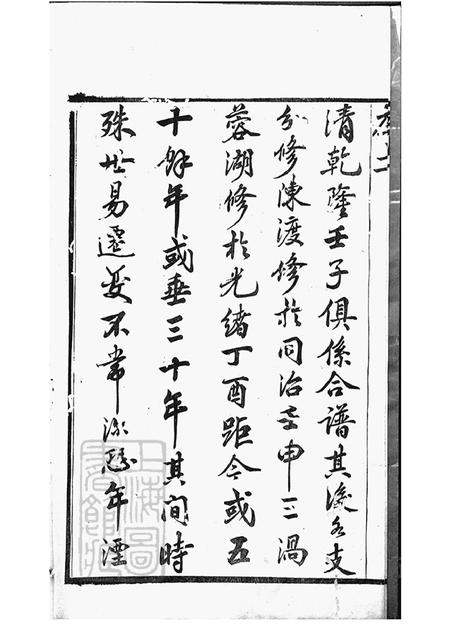 清乾隆壬子俱係合譜其後各支
分修陳渡修於同治壬申三渦
蓉湖修於光緒丁酉距今或五
十餘年或垂三十年其間時
殊世易遷變不常深恐年湮
上海圖書館藏